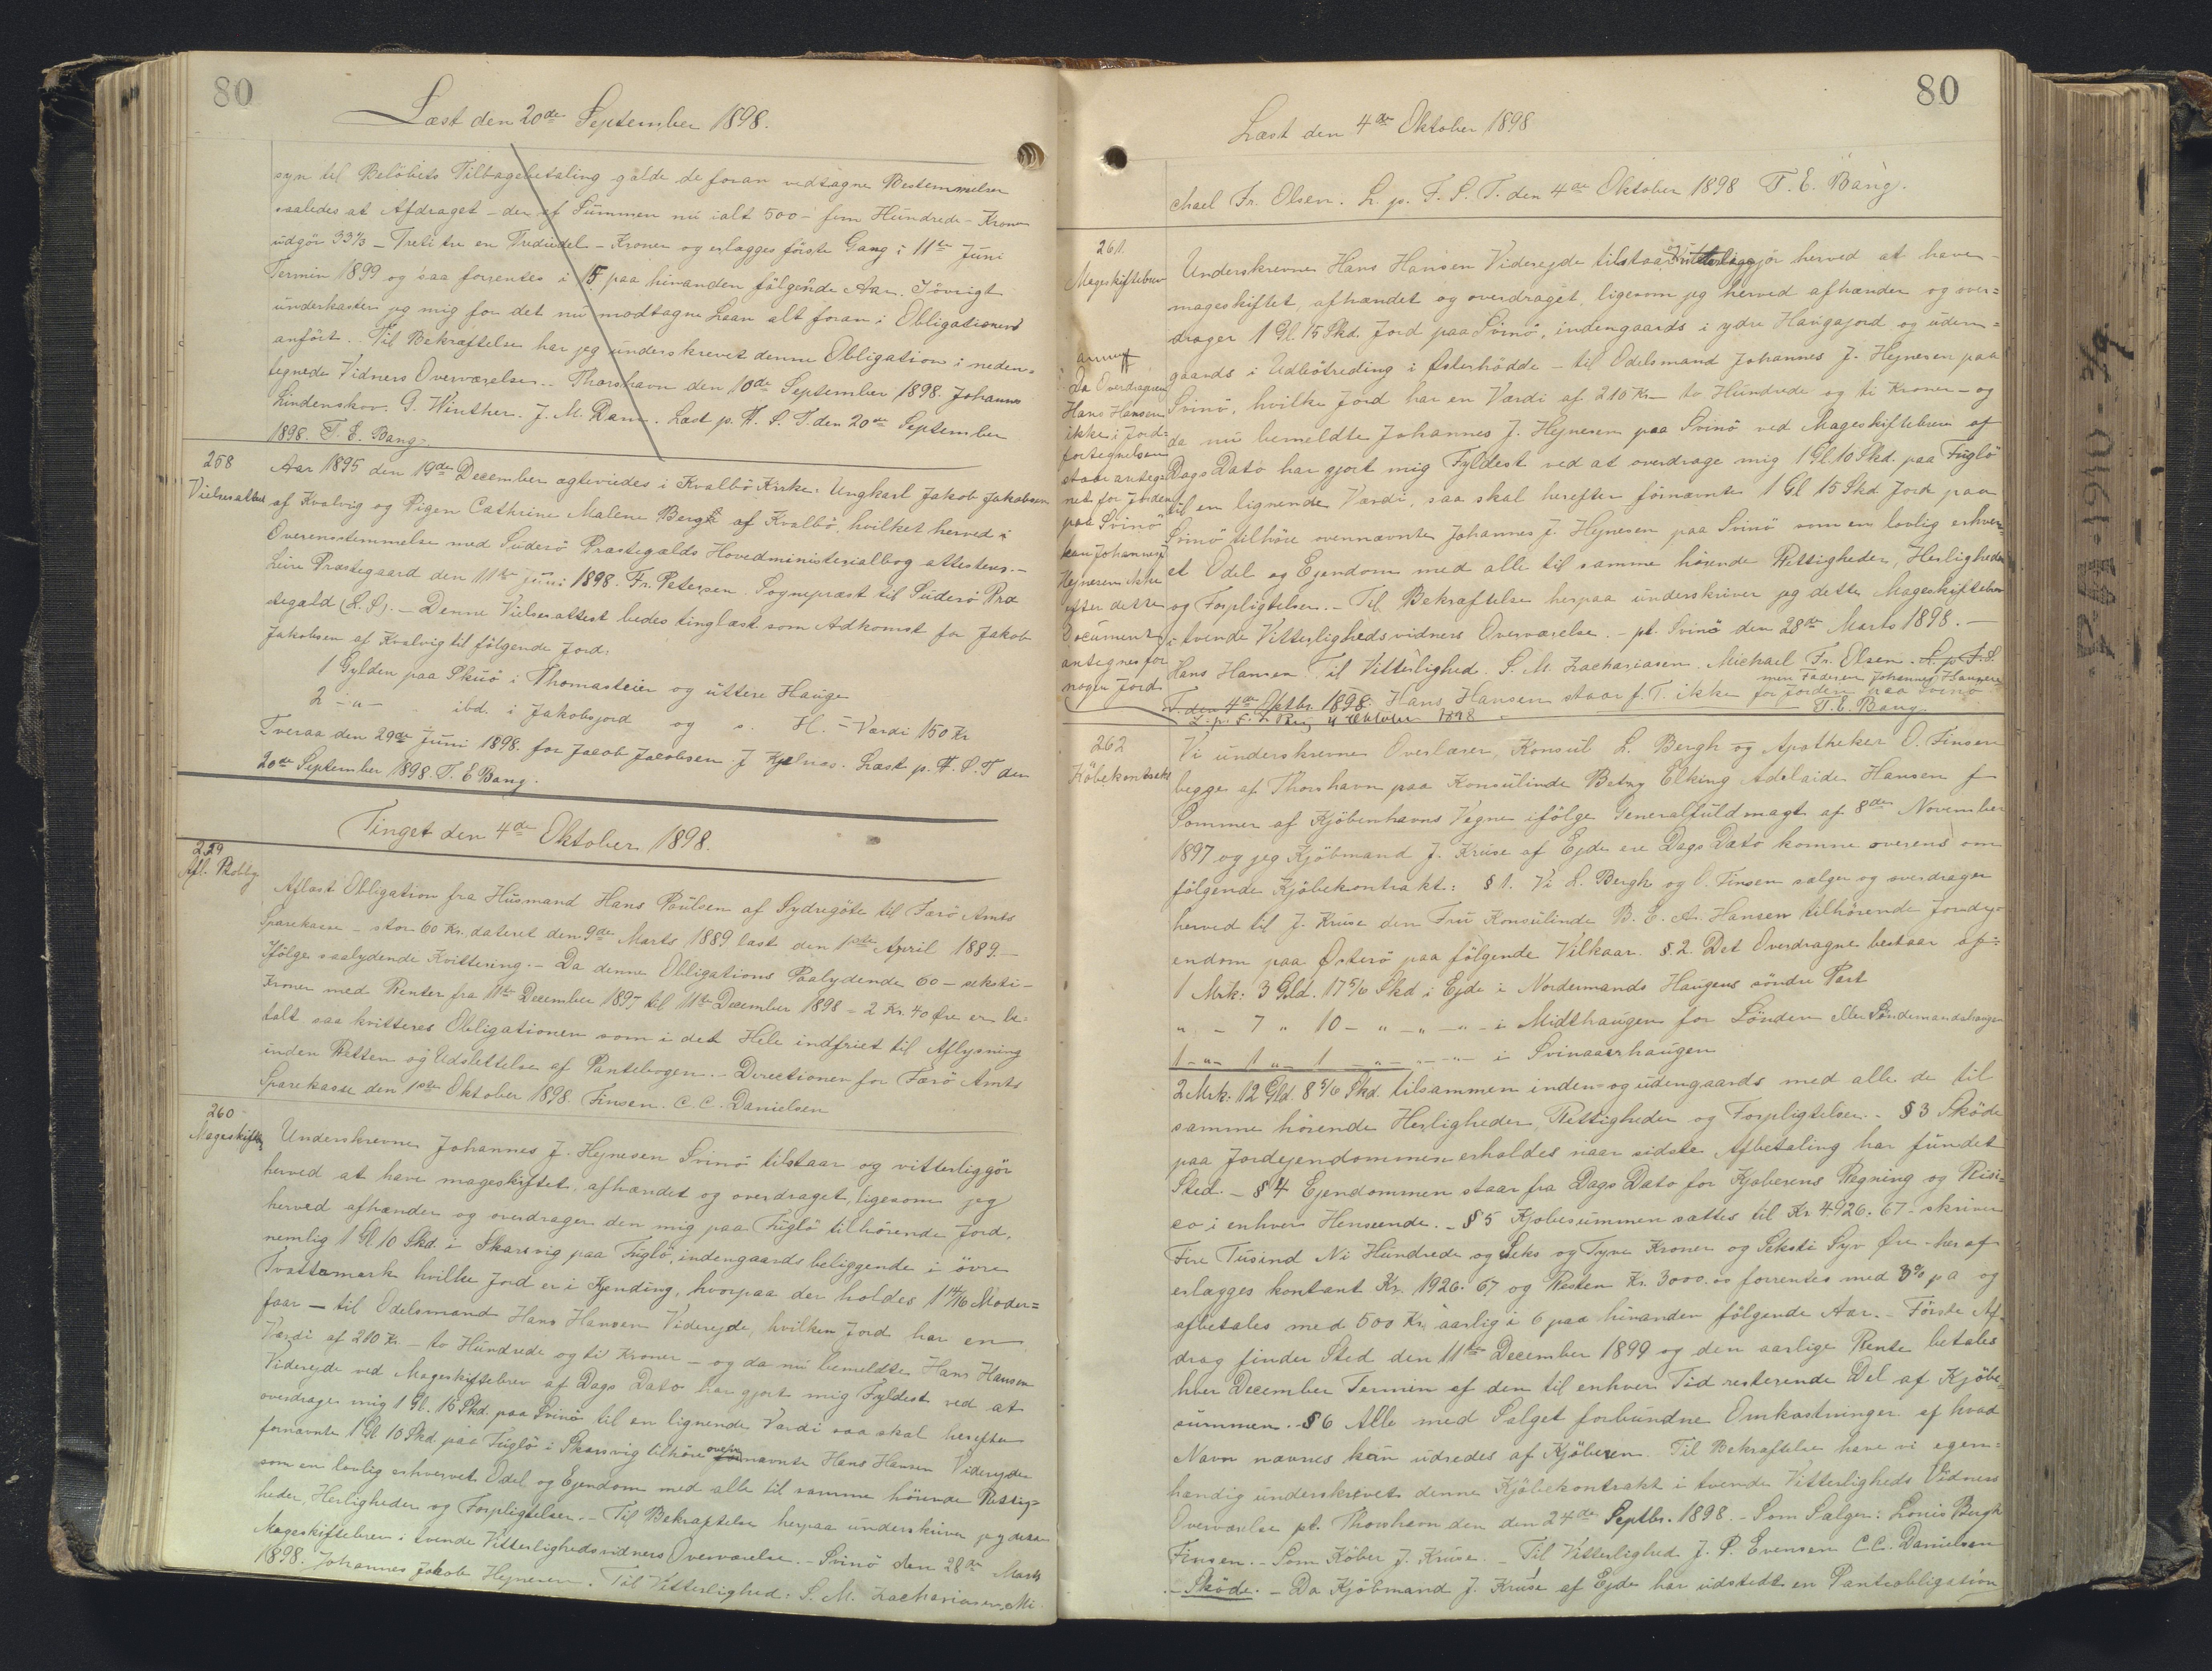 80
Læst den 20de September 1898.
syn til Beløbets Tilbagebetaling gælde de foran vedtagne Bestemmelser
saaledes at Afdraget - der af Summen nu ialt 500 - fem Hundrede - Kroner
udgør 33⅓ - Treti tre en Trediedel - Kroner og erlægges første Gang i 11te Juni
Termin 1899 og saa forrentes i 15 paa hinanden følgende Aar. Iøvrigt
underkaster jeg mig for det nu modtagne Laan alt foran i Obligationen
anført. Til Bekræftelse har jeg underskrevet denne Obligation i neden-
tegnede Vidners Overværelse. - Thorshavn den 10de September 1898. Johannes
Lindenskov. G. Winther. J. M. Dam. Læst p. F. S. T. den 20de September
1898. T. E. Bang.
258
Vielsesattest
Aar 1895 den 19de December ægteviedes i Kvalbø Kirke: Ungkarl Jakob Jakobsen
af Kvalvig og Pigen Cathrine Malene Berg af Kvalbø, hvilket herved i
Overensstemmelse med Suderø Præstegælds Hovedministerialbog attesteres. -
Præstegaard den 11te Juni 1898. Fr. Petersen Sognepræst til Suderø Præ
stegæld (L. S.). - Denne Vielsesattest bedes tinglæst som Adkomst for Jakob
Jakobsen af Kvalvig til følgende Jord:
1 Gylden paa Skuø i Thomasteier og uttere Hauge
2 - " - ibd. i Jakobsjord og s. H. - Værdi 150 Kr
Tveraa den 29de Juni 1898. for Jacob Jacobsen J. Kjølnæs. Læst p. F. S. T den
20de September 1898. T. E Bang.
Tinget den 4de Oktober 1898.
259
Afl. Pkoblg.
Aflæst Obligation fra Husmand Hans Poulsen af Sydregöte til Færø Amts
Sparekasse - stor 60 Kr. dateret den 9de Marts 1889 læst den 1ste April 1889. -
Ifølge saalydende Kvittering. - Da denne Obligations Paalydende 60 - seksti -
Kroner med Renter fra 11te December 1897 til 11te December 1898 = 2 Kr. 40 Øre er be-
talt saa kvitteres Obligationen som i det Hele indfriet til Aflysning
inden Retten og Udslettelse af Pantebogen. - Directionen for Færø Amts
Sparekasse den 1ste Oktober 1898. Finsen. C. C. Danielsen
260
Mageskifte
Underskrevne Johannes J. Hejnesen Svinø tilstaar og vitterliggør
herved at have mageskiftet, afhændet og overdraget, ligesom jeg
herved afhænder og overdrager den mig paa Fuglø tilhørende Jord,
nemlig 1 Gl 10 Skd. i Skarsvig paa Fuglø, indengaards beliggende i øvre
Tvattamark hvilke Jord er i Kjending, hvorpaa der holdes Moder=
faar - til Odelsmand Hans Hansen Viderejde, hvilken Jord har en
Værdi af 210 Kr. - to Hundrede og ti Kroner - og da nu bemeldte Hans Hansen
Viderejde ved Mageskiftebrev af Dags Dato har gjort mig Fyldest ved at
overdrage mig 1 Gl. 15 Skd. paa Svinø til en lignende Værdi saa skal herefter
fornævnte 1 Gl 10 Skd. paa Fuglø i Skarsvig tilhøre ovennævnte Hans Hansen Viderejde
som en lovlig erhvervet Odel og Ejendom med alle til samme hørende Rettig-
heder, Herligheder og Forpligtelser. - Til Bekræftelse herpaa underskriver jeg dette
Mageskiftebrev i tvende Vitterlighedsvidners Overværelse. - Svinø den 28de Marts
1898. Johannes Jakob Hejnesen. Til Vitterlighed: S. M. Zachariasen. Mi-
80
Læst den 4de Oktober 1898
chael Fr. Olsen. L. p. F. S. T. den 4de Oktober 1898 T. E. Bang.
261.
Mageskiftebrev
Underskrevne Hans Hansen Viderejde tilstaar og vitterliggjør herved at have
mageskiftet afhændet og overdraget, ligesom jeg herved afhænder og over=
drager 1 Gl. 15 Skd. Jord paa Svinø, indengaards i ydre Haugajord og uden=
gaards i Udbøtreding i Østerhødde - til Odelsmand Johannes J. Hejnesen paa
Svinø, hvilke Jord har en Værdi af 210 Kr - to Hundrede og ti Kroner - og
da nu bemeldte Johannes J. Hejnesen paa Svinø ved Mageskiftebrev af
Dags Dato har gjort mig Fyldest ved at overdrage mig 1 Gl. 10 Skd. paa Fuglø
til en lignende Værdi, saa skal herefter fornævnte 1 Gl 15 Skd Jord paa
Svinø tilhøre ovennævnte Johannes J. Hejnesen paa Svinø som en lovlig erhver-
et Odel og Ejendom med alle til samme hørende Rettigheder, Herligheder
og Forpligtelser. - Til Bekræftelse herpaa underskriver jeg dette Mageskiftebrev
i tvende Vitterlighedsvidners Overværelse. - pt. Svinø den 28de Marts 1898. -
Hans Hansen. Til Vitterlighed. S. M. Zachariasen. Michael Fr. Olsen. L. p. F. S.
T. den 4de Oktbr. 1898. Hans Hansen staar f. T. ikke for Jorden paa Svinø
men Faderen Johannes Hansen
L. p. F. S. Ting 4 Oktober 1898. T. E. Bang.
Da Overdrageren
Hans Hansen
ikke i Jord-
fortegnelsen
staar anteg-
net for Jorden
paa Svinø
kan Johannes J.
Hejnesen ikke
efter dette
Document
antegnes for
nogen Jord
262
Købekontrakt
Vi underskrevne Overlærer, Konsul L. Bergh og Apotheker O. Finsen
begge af Thorshavn paa Konsulinde Betzy Elking Adelaide Hansen f
Sommer af Kjøbenhavns Vegne ifølge Generalfuldmagt af 8de November
1897 og jeg Kjøbmand J. Kruse af Ejde ere Dags Dato komne overens om
følgende Kjøbekontrakt: § 1. Vi L. Bergh og O. Finsen sælger og overdrager
herved til J. Kruse den Fru Konsulinde B. E. A. Hansen tilhørende Jordej-
endom paa Østerø paa følgende Vilkaar. § 2. Det Overdragne bestaar af:
1 Mrk: 3 Gld. 17 5/6 Skd i Ejde i Nordermands Haugens söndre Part
" - 7 " 10 - " - " - " - i Midthaugen for Sönden eller Søndemandshaugen
1 - " - 1 " - 1 - " - " - " - i Svinaaerhaugen
2 Mrk: 12 Gld. 8 5/6 Skd. tilsammen inden- og udengaards med alle de til
samme hørende Herligheder, Rettigheder og Forpligtelser. - § 3 Skøde
paa Jordejendommen erholdes naar sidste Afbetaling har fundet
Sted. - § 4 Ejendommen staar fra Dags Dato for Kjøberens Regning og Risi=
co i enhver Henseende. - § 5 Kjøbesummen sættes til Kr 4926. 67 - skriver
Fire Tusind Ni Hundrede og Seks og Tyve Kroner og Seksti Syv Øre - heraf
erlægges kontant Kr. 1926. 67 og Resten Kr. 3000. 00 forrentes med 3% p a og
afbetales med 500 Kr. aarlig i 6 paa hinanden følgende Aar. - Første Af-
drag finder Sted den 11te December 1899 og den aarlige Rente betales
hver December Termin af den til enhver Tid resterende Del af Kjøbe-
summen. - § 6 Alle med Salget forbundne Omkostninger af hvad
Navn nævnes kan udredes af Kjøberen. Til Bekræftelse have vi egen=
hændig underskrevet denne Kjøbekontrakt i tvende Vitterligheds Vidners
Overværelse pt. Thorshavn den den 24de Septbr. 1898. - Som Sælger: Louis Bergh
Finsen. - Som Køber J. Kruse. - Til Vitterlighed J. P. Evensen C. C. Danielsen
- Skøde. - Da Kjøbmand J. Kruse af Ejde har udstedt en Panteobligation